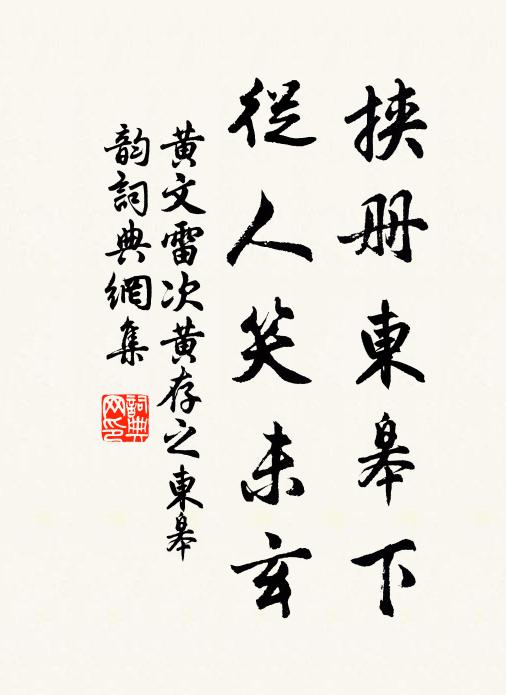 挾册東皋下
從人笑未玄
黄文雷次黄存之東皋
韵詞典網集
詞典网印